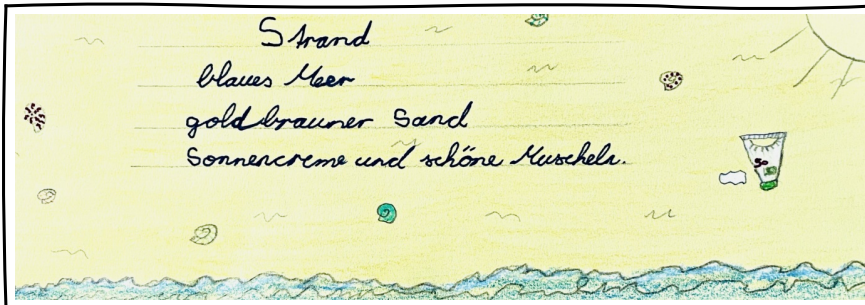 Strand
blaues Meer
goldbrauner Sand
Sonnencreme und schöne Muscheln.
50